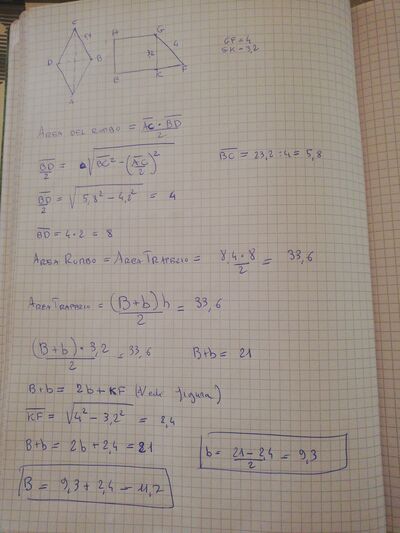 C
4,2
D
B
A
H
G
3,2
4
E
K
F
GF = 4
GK = 3,2
AREA DEL ROMBO = AC · BD
BD/2 = √BC² - (AC/2)²
BC = 23,2 : 4 = 5,8
BD/2 = √5,8² - 4,2² = 4
BD = 4 · 2 = 8
AREA ROMBO = AREA TRAPEZIO = 8,4 · 8/2 = 33,6
AREA TRAPEZIO = (B+b)h/2 = 33,6
(B+b) · 3,2/2 = 33,6
B+b = 21
B+b = 2b + KF (Vede figura)
KF = √4² - 3,2² = 2,4
B+b = 2b + 2,4 = 21
b = 21 - 2,4/2 = 9,3
B = 9,3 + 2,4 = 11,7